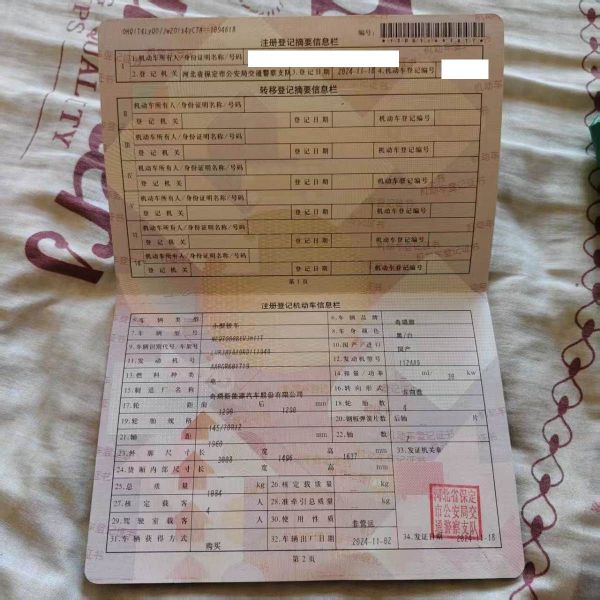 注册登记摘要信息栏
编号:
I 1.机动车所有人/身份证明名称/号码
2.登记机关 河北省保定市公安局交通警察支队 3.登记日期 2024-11-18 4.机动车登记编号
转移登记摘要信息栏
II 机动车所有人/身份证明名称/号码
登记机关 登记日期 机动车登记编号
III 机动车所有人/身份证明名称/号码
登记机关 登记日期 机动车登记编号
IV 机动车所有人/身份证明名称/号码
登记机关 登记日期 机动车登记编号
V 机动车所有人/身份证明名称/号码
登记机关 登记日期 机动车登记编号
VI 机动车所有人/身份证明名称/号码
登记机关 登记日期 机动车登记编号
VII 机动车所有人/身份证明名称/号码
登记机关 登记日期 机动车登记编号
第1页
注册登记机动车信息栏
5.车辆类型 小型轿车 6.车辆品牌 奇瑞牌
7.车辆型号 8.车身颜色
9.车辆识别代号/车架号 10.国产/进口 国产
11.发动机号 12.发动机型号
13.燃料种类 电 14.排量/功率 ml/ 30 kw
15.制造厂名称 奇瑞新能源汽车股份有限公司 16.转向形式 方向盘
17.轮距 前 1290 后 1290 mm 18.轮胎数 4
19.轮胎规格 145/70R12 20.钢板弹簧片数 后轴 片
21.轴距 1960 mm 22.轴数 2
23.外廓尺寸 长 宽 1496 高 1637 mm 33.发证机关章
24.货厢内部尺寸 长 宽 高 mm
25.总质量 1084 kg 26.核定载质量 kg
27.核定载客 4 人 28.准牵引总质量 kg
29.驾驶室载客 人 30.使用性质 非营运
31.车辆获得方式 购买 32.车辆出厂日期 2024-11-02 34.发证日期 2024-11-18
河北省保定
市公安局交
通警察支队
第2页
QUALITY